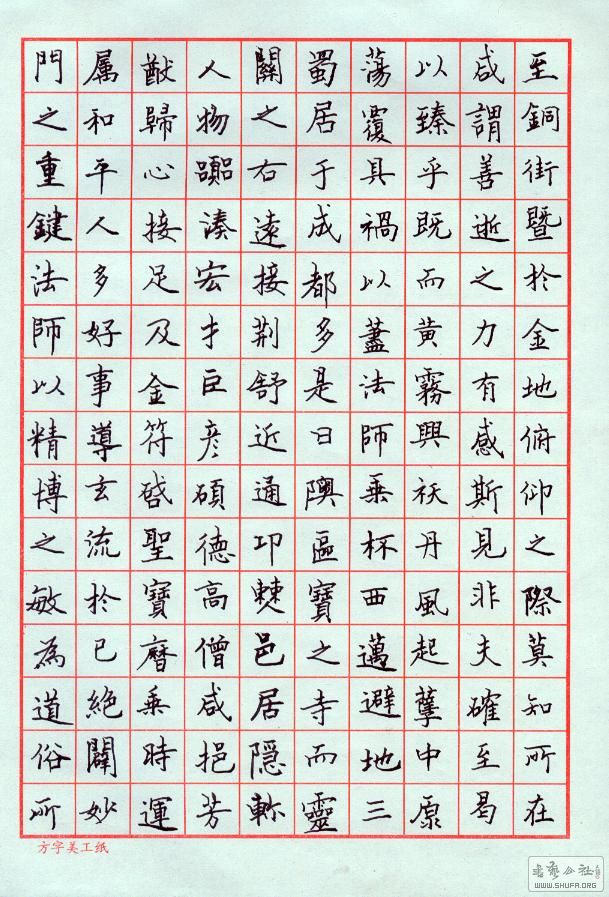 至銅街暨於金地俯仰之際莫知所在
咸謂善逝之力有感斯見非夫確至曷
以臻乎既而黃霧興祅丹風起孽中原
蕩覆具禍以藎法師乗杯西邁避地三
蜀居于成都多是日隩區寶之寺而靈
關之右遠接荆舒近通卭僰邑居隠軫
人物嚻湊宏才巨彦碩德高僧咸挹芳
猷歸心接足及金符啓聖寶曆乗時運
属和平人多好事導玄流於已絶闢妙
門之重鍵法師以精博之敏為道俗所
方字美工纸
书法公社
WWW.SHUFA.ORG